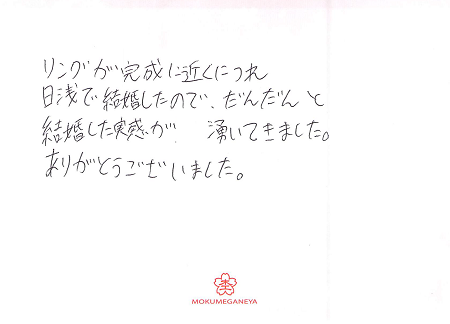 リングが完成に近くにつれ
日浅で結婚したので、だんだんと
結婚した実感が 湧いてきました。
ありがとうございました。
MOKUMEGANEYA